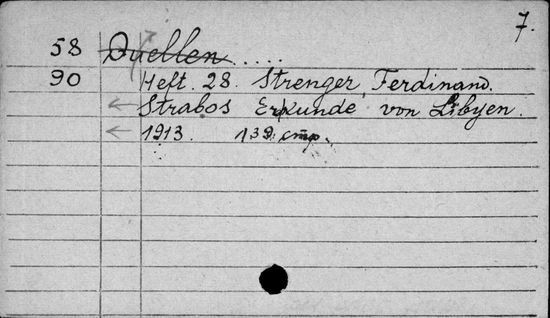 7.
58 Quellen.....
90 Heft. 28. Strenger, Ferdinand.
← Strabos Erdkunde von Libyen.
← 1913. 139 стр.